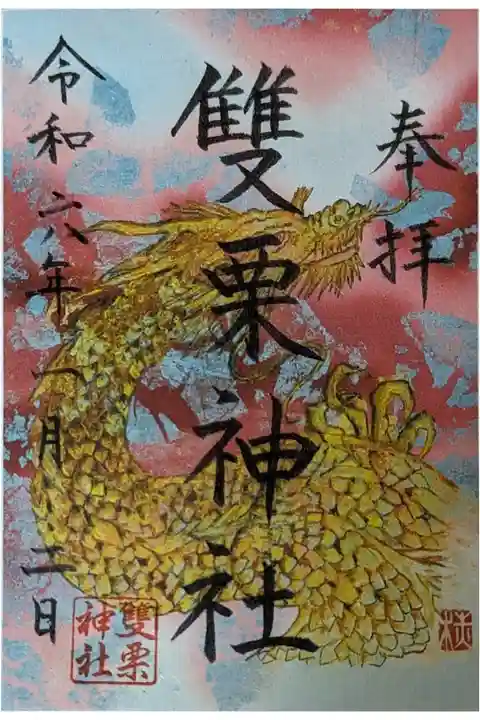 奉拝
雙栗神社
令和六年一月二日
雙栗
神社